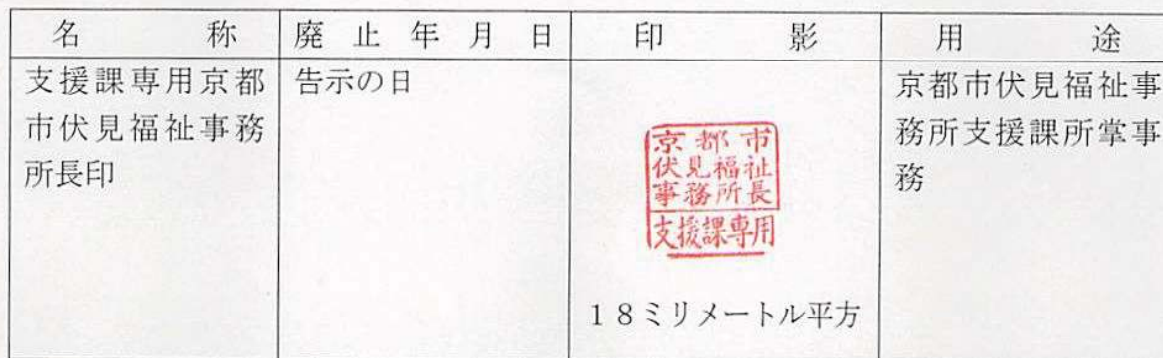 名称 廃止年月日 印影 用途
支援課専用京都
市伏見福祉事務
所長印
告示の日
京都市
伏見福祉
事務所長
支援課専用
18ミリメートル平方
京都市伏見福祉事
務所支援課所掌事
務